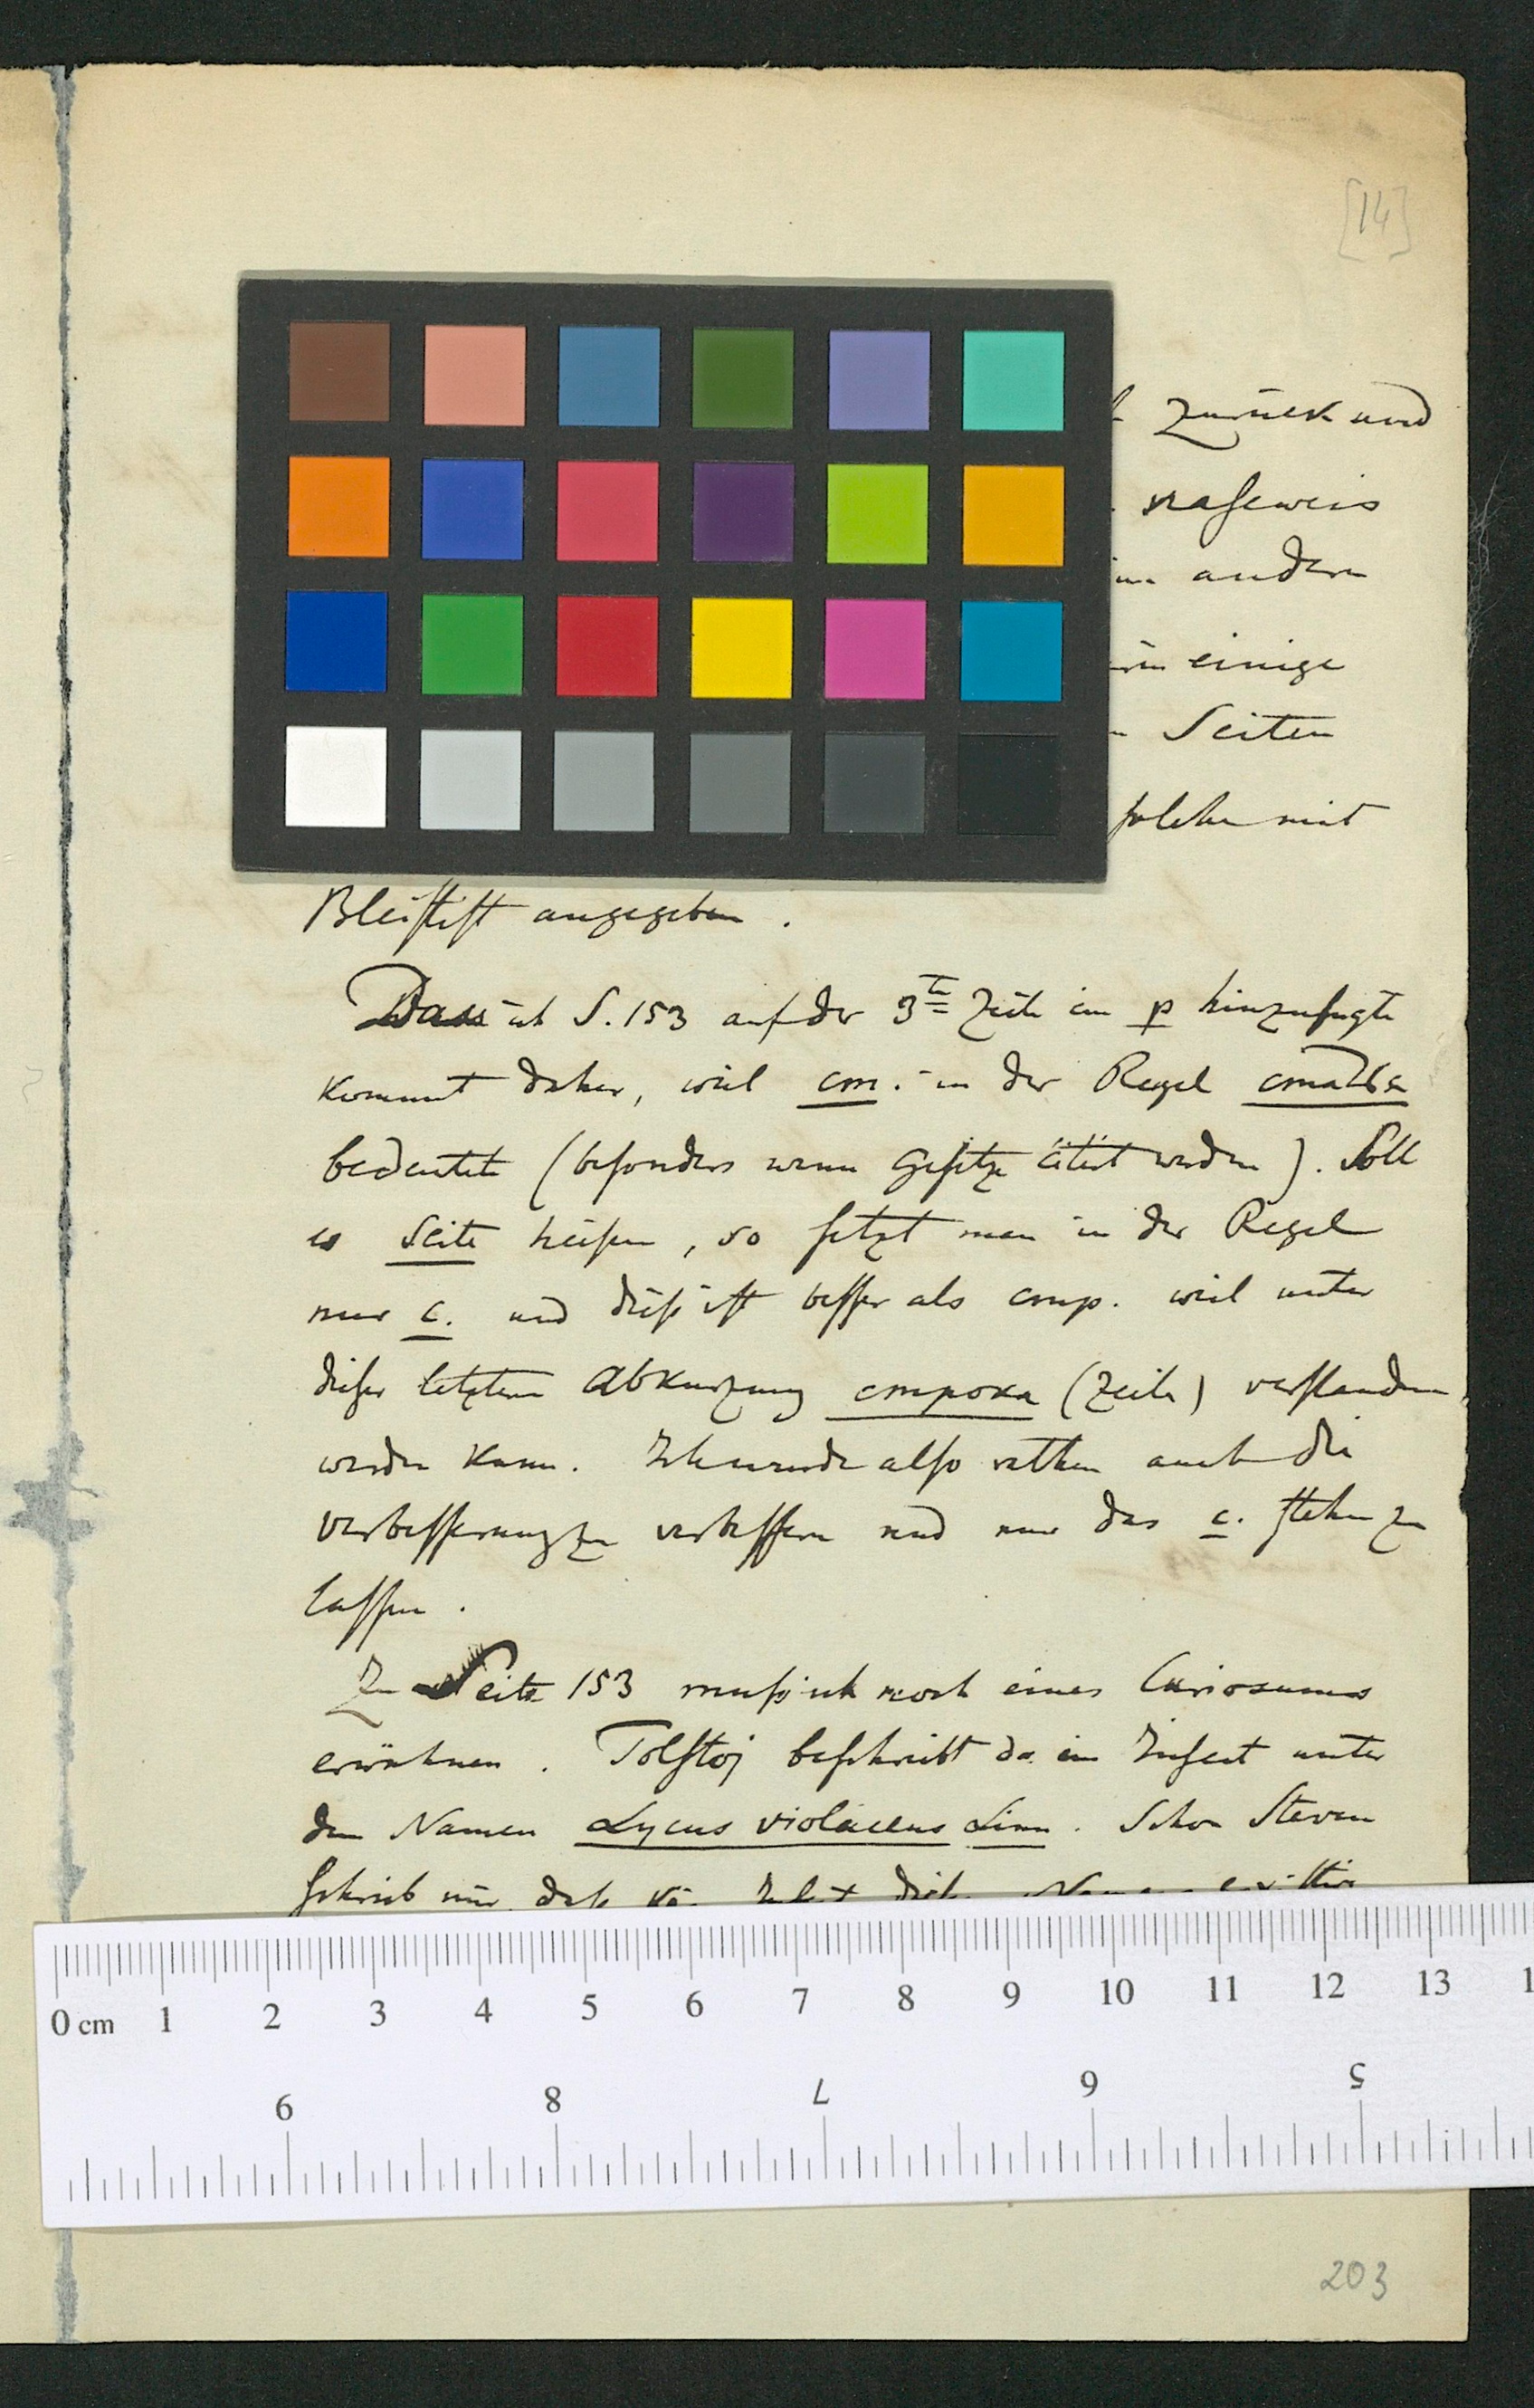 [14]
zurück und
naseweis
andern
einige
Seiten
solche mit
Bleistift angegeben.
Dass ich S. 153 auf der 3te Zeile ein p hinzufügte
kommt daher, weil cm. in der Regel статья
bedeutet (besonders wenn Gesetze citirt werden). Soll
es Seite heißen, so setzt man in der Regel
nur c. und dieß ist besser als стр. weil unter
dieser letztern Abkurzung строка (Zeile) verstanden
werden kann. Ich würde also rathen auch die
Verbesserung zu verbessern und nur das c. stehn zu
lassen.
Zu Seite 153 muß ich noch eines Curiosums
erwähnen. Tolstoj beschreibt da ein Insect unter
dem Namen Lycus violaceus Linn. Schon Steven
schrieb mir, daß
0 cm 1 2 3 4 5 6 7 8 9 10 11 12 13 1
9 8 7 6 5
203